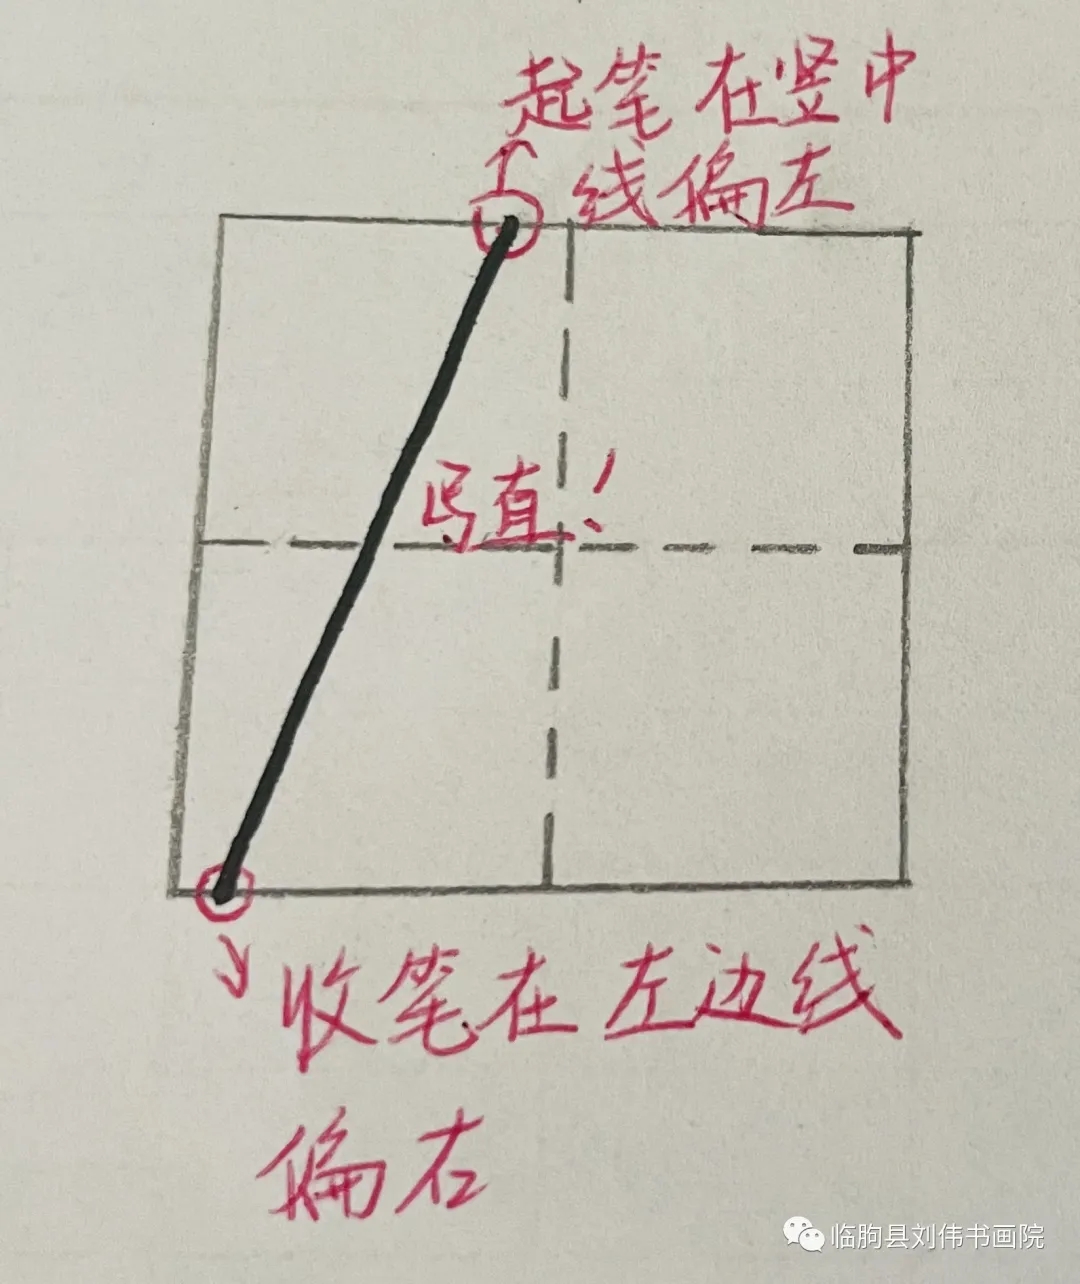 起笔在竖中
线偏左
写直！
收笔在左边线
偏右
临朐县刘伟书画院